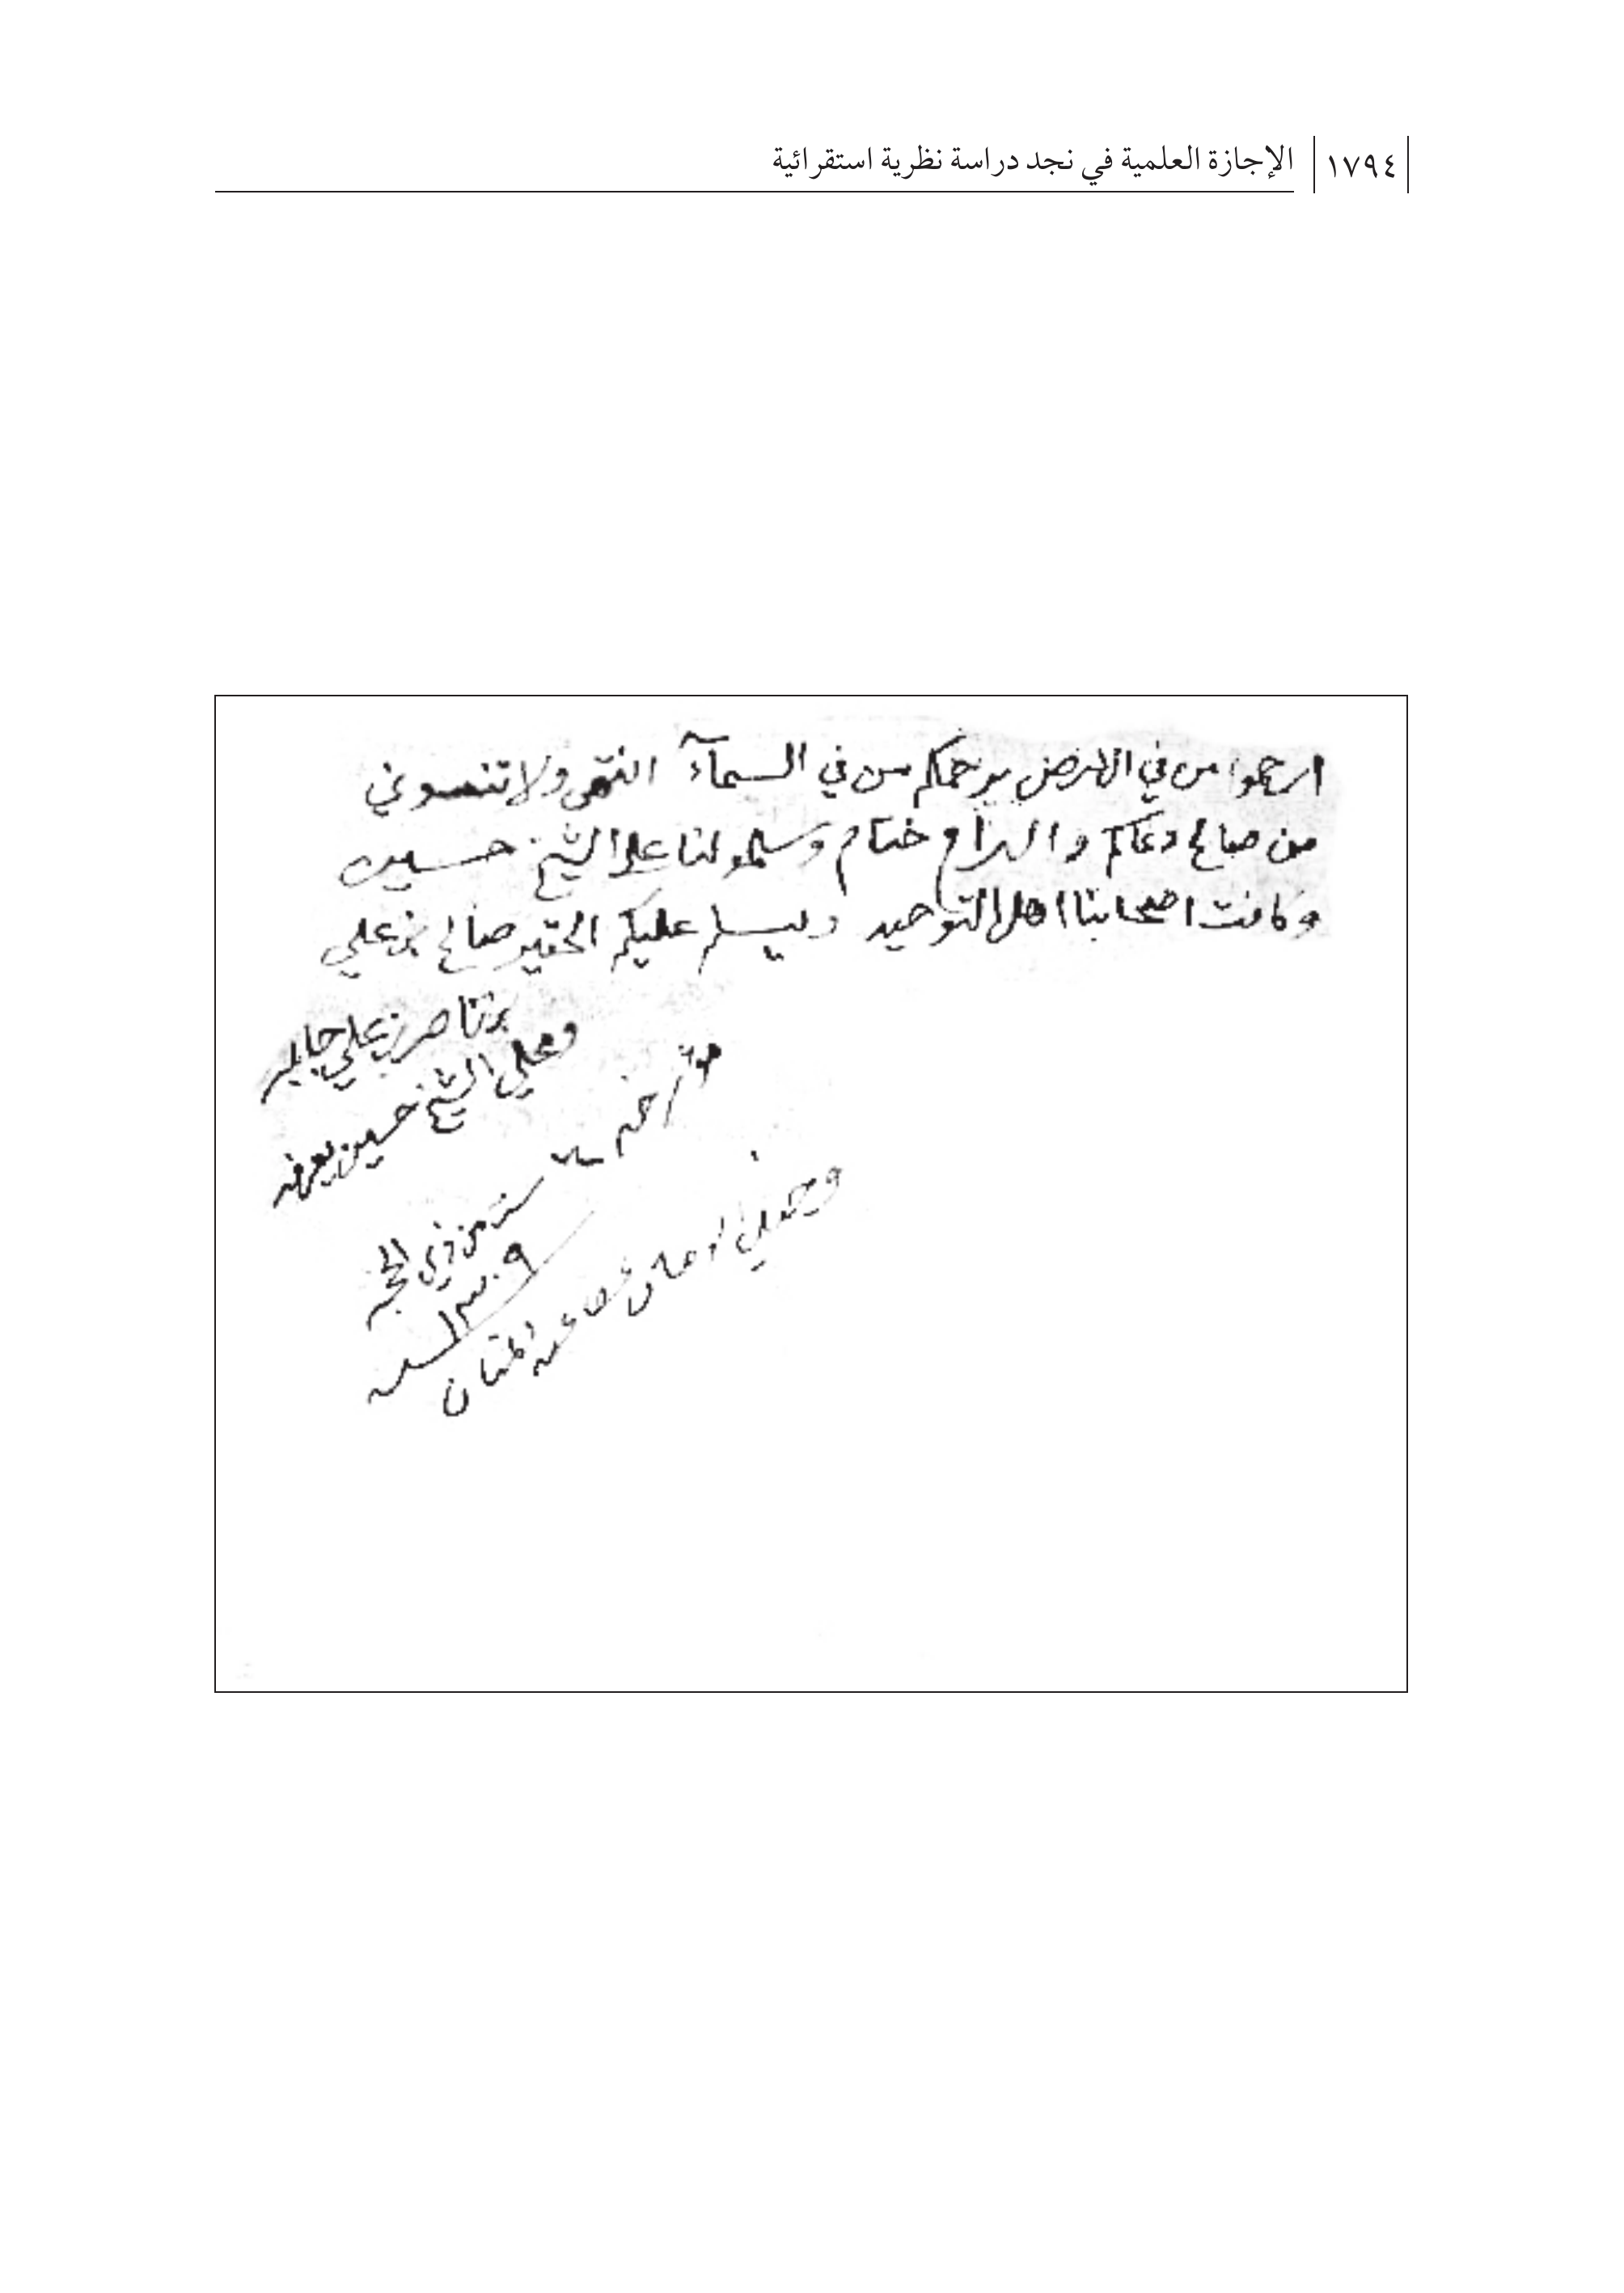 ١٧٩٤ الإجازة العلمية في نجد دراسة نظرية استقرائية
ارحموا من في الارض يرحمكم من في السمآء انتهى ولا تنسوني
من صالح دعاكم والسلام ختام وسلمو لنا على الشيخ حسين
وكافت اصحابنا اهل التوحيد ويسلم عليكم الحقير صالح بن علي
بن ناصر بن علي
وعلى الشيخ حسين
من ذي الحجه
١٣٠٩ سنه